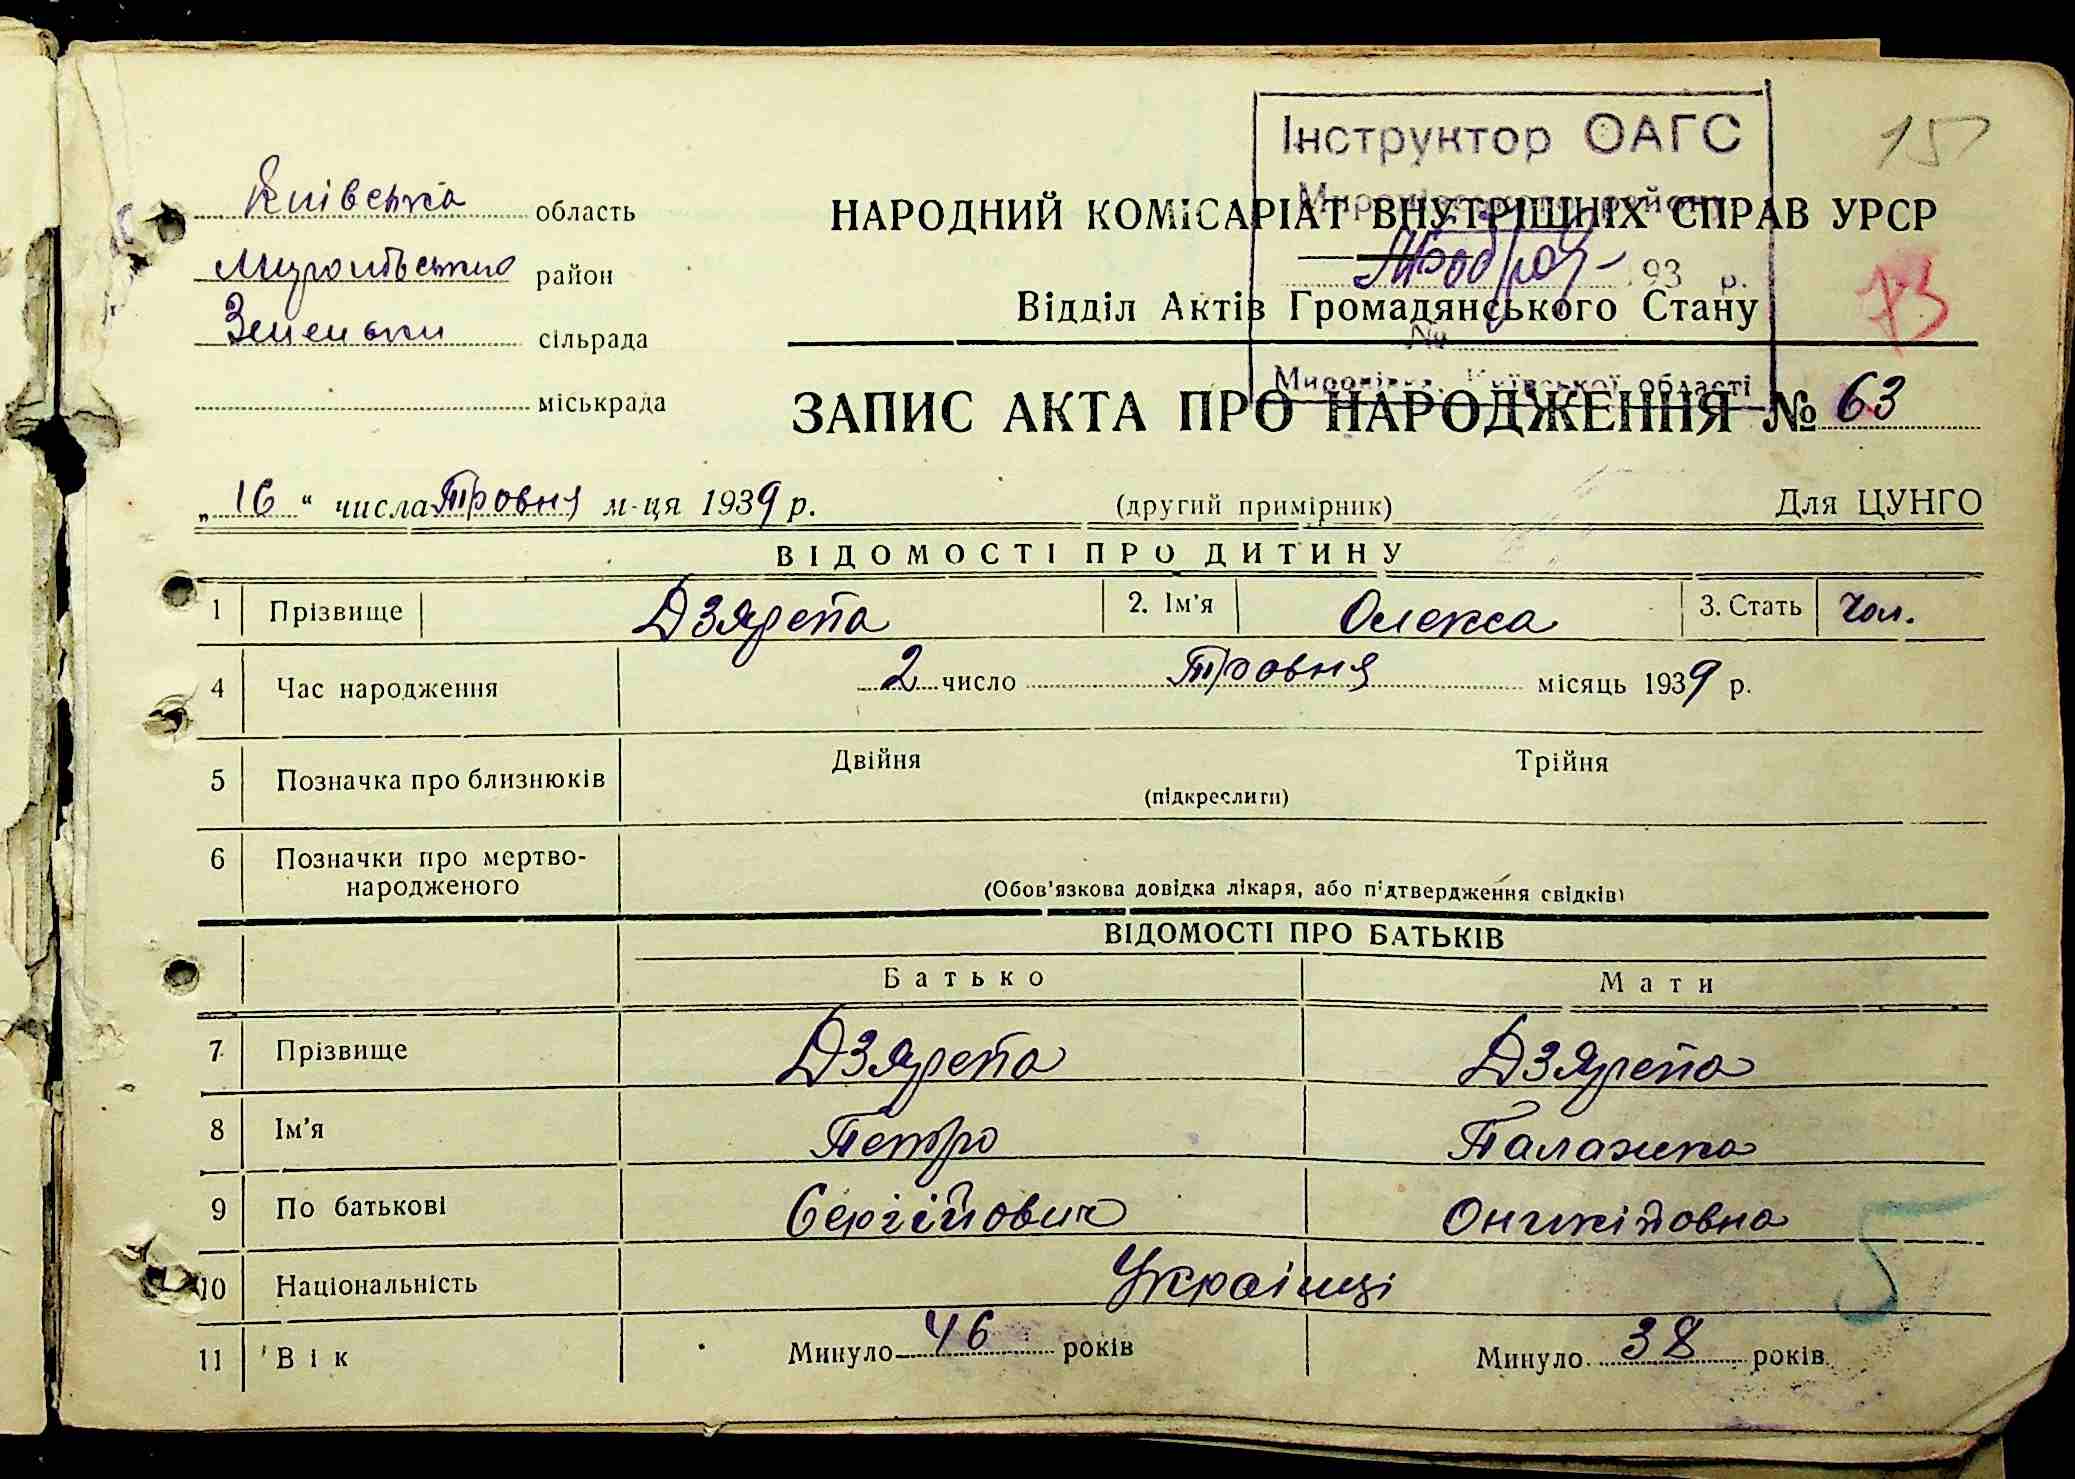 Інструктор ОАГС
15
Київська область
НАРОДНИЙ КОМІСАРІАТ ВНУТРІШНІХ СПРАВ УРСР
район
193 р.
73
Відділ Актів Громадянського Стану
Зеленьки сільрада
№
міськрада
Миронівка, Київської області
ЗАПИС АКТА ПРО НАРОДЖЕННЯ № 63
„16“ числа Травня м-ця 1939 р. (другий примірник) Для ЦУНГО
ВІДОМОСТІ ПРО ДИТИНУ
1 Прізвище Дзярепа 2. Ім'я Олекса 3. Стать Чол.
4 Час народження 2 число Травня місяць 1939 р.
5 Позначка про близнюків Двійня Трійня
(підкреслити)
6 Позначки про мертво-
народженого (Обов'язкова довідка лікаря, або підтвердження свідків)
ВІДОМОСТІ ПРО БАТЬКІВ
Батько Мати
7 Прізвище Дзярепа Дзярепа
8 Ім'я Петро Палажка
9 По батькові Сергійович
10 Національність Українці
5
11 Вік Минуло 46 років Минуло 38 років